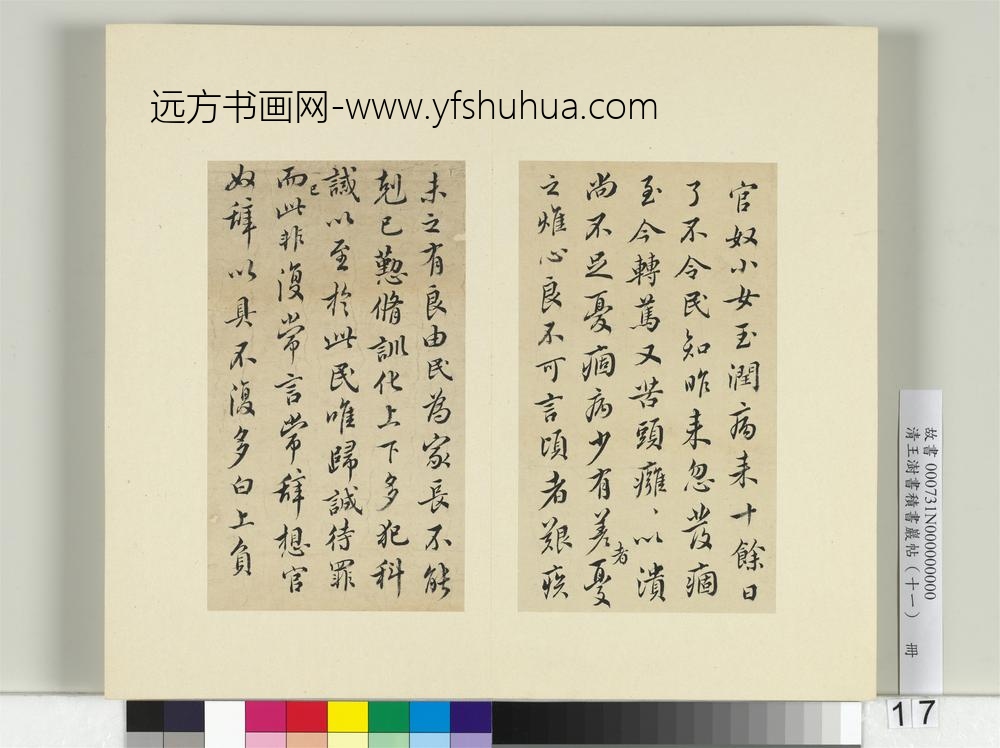 远方书画网-www.yfshuhua.com
官奴小女玉潤病来十餘日
了不令民知昨来忽發痼
至今轉篤又苦頭癰、以潰
尚不足憂痼病少有差者憂
之燋心良不可言頃者艱疾
未之有良由民為家長不能
剋己懃脩訓化上下多犯科
誡以至於此民唯歸誠待罪
而已此非復常言常辭想官
奴辭以具不復多白上負
故書 000731N000000000
清王澍書積書巖帖（十一） 冊
17